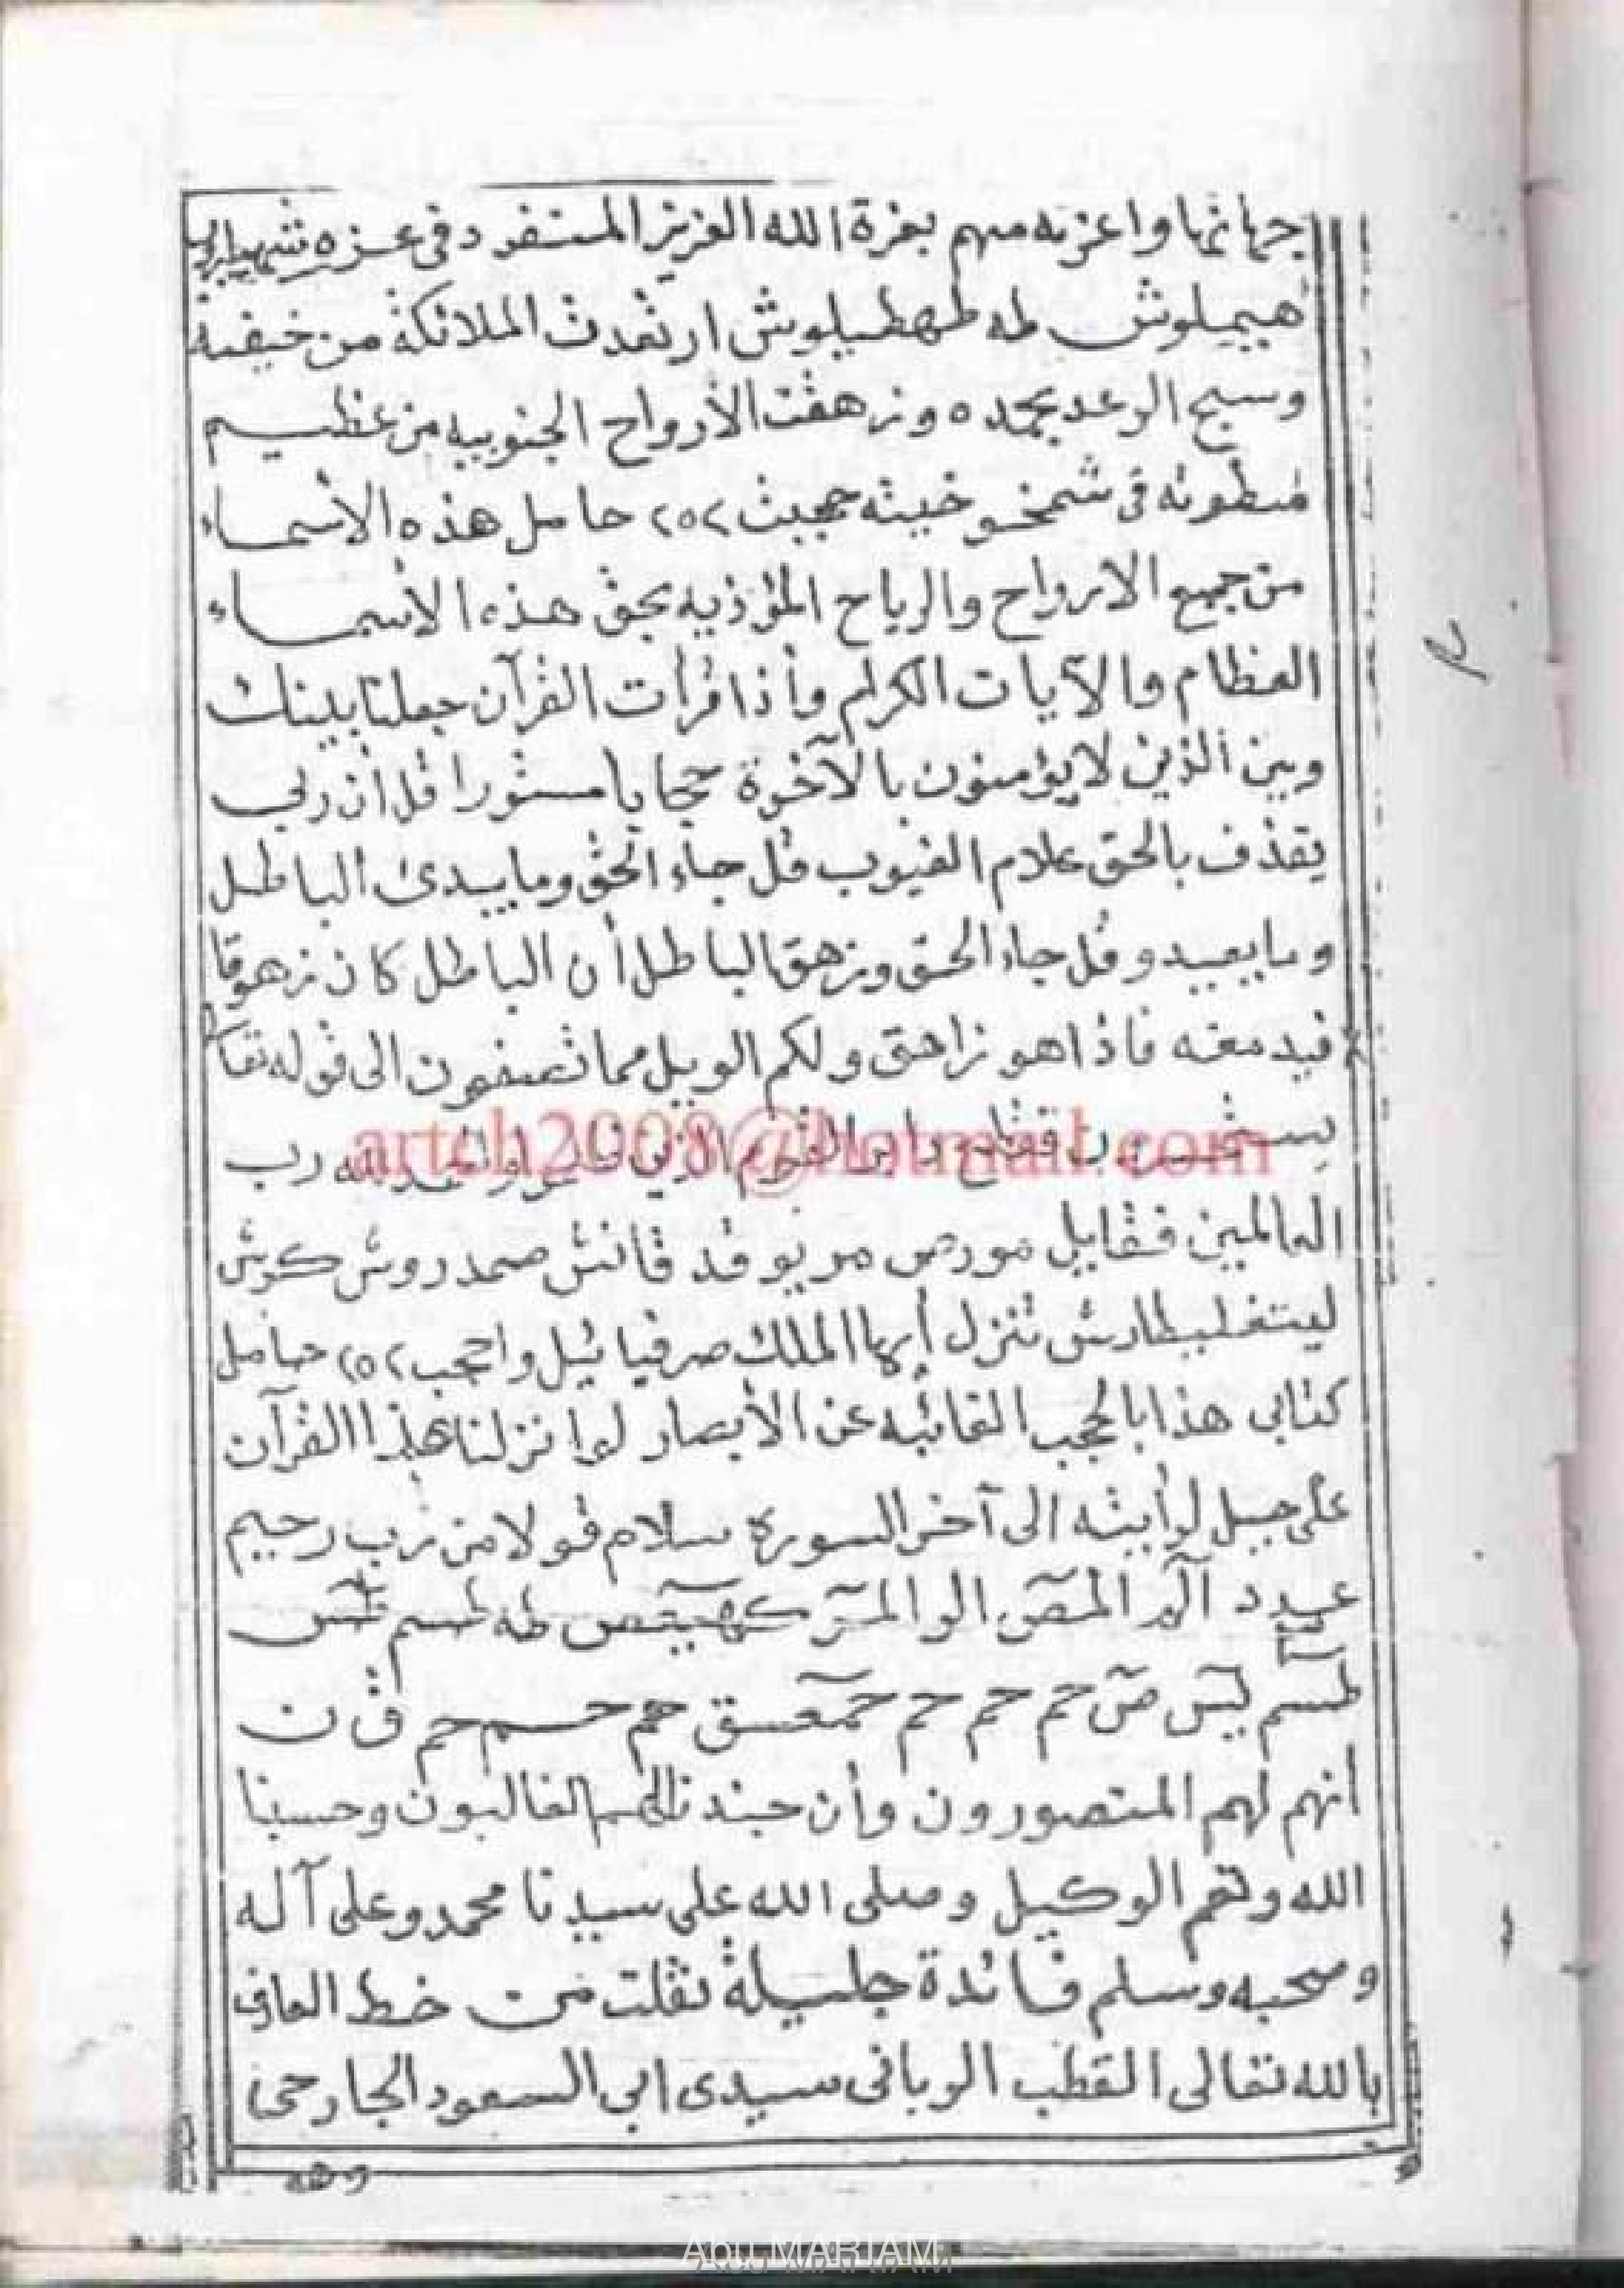 واعزبه منهم بعزة الله العزيز المتفرد في عزه
هيميلوش طه طهطيلوش ارتعدت الملائكة من خيفته
وسبح الرعد بحمده وزهقت الأرواح الجنوبيه من عظيم
في حامل هذه الاسماء
من جميع الارواح والرياح المؤذيه بحق هذه الأسماء
العظام والآيات الكرام وأذا قرأت القرآن جعلنا بينك
وبين الذين لا يؤمنون بالآخرة حجابا مستورا قل أن ربي
يقذف بالحق علام الغيوب قل جاء الحق وما يبدئ الباطل
وما يعيد وقل جاء الحق وزهق الباطل أن الباطل كان زهوقا
فيدمغه فاذا هو زاهق ولكم الويل مما تصفون الى قوله تعا
artch2008@hotmail.com
رب
العالمين مورص صمدروش كرش
تنزل أيها الملك صرفيائيل واحجب ٢٥٢ حامل
كتابى هذا بالحجب الغائبه عن الأبصار لو انزلنا هذا القرآن
على جبل لرأيته الى آخر السورة سلام قولا من رب رحيم
المص الر المر كهيعص طه طسم طس
طسم يس ص حم حم حم حمعسق حم حم ق ن
أنهم لهم المنصورون وأن جندنا لهم الغالبون وحسبنا
الله ونعم الوكيل وصلى الله على سيدنا محمد وعلى آله
وصحبه وسلم فائدة جليلة نقلت من خط العارف
بالله تعالى القطب الربانى سيدى ابى السعود الجارحى
Abu MARIAM